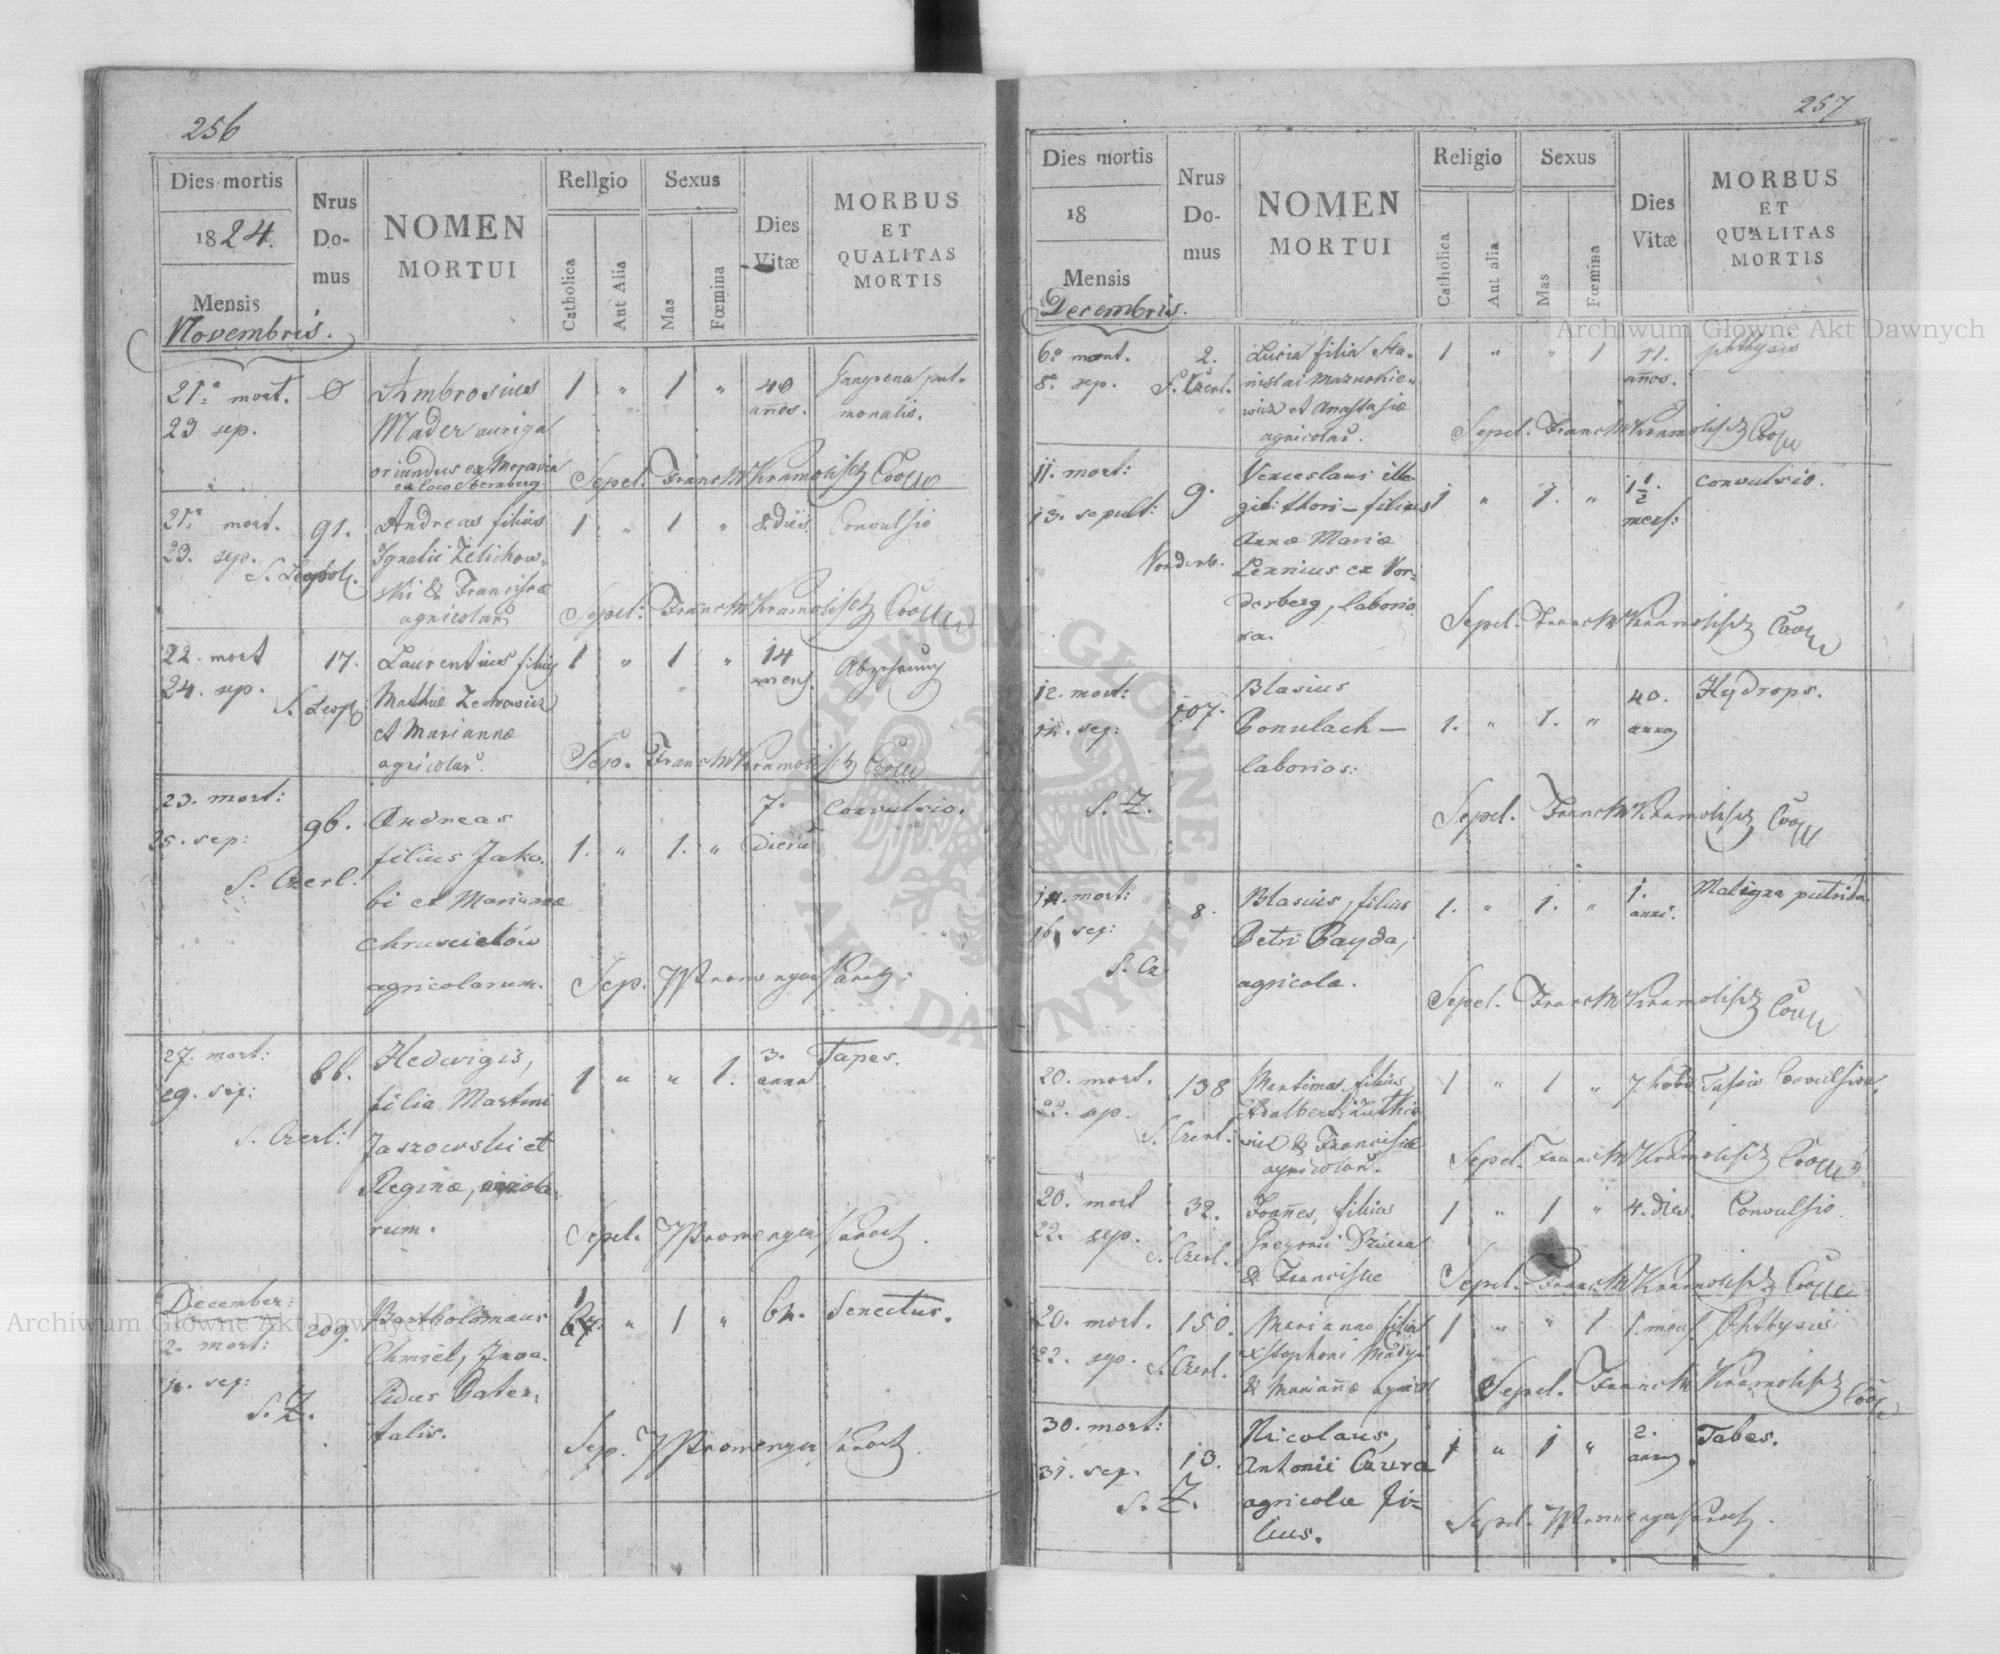 256
Dies mortis
1824.
Mensis
Novembris.
Nrus
Do-
mus
NOMEN
MORTUI
Religio
Catholica
Aut Alia
Sexus
Mas
Fœmina
Dies
Vitæ
MORBUS
ET
QUALITAS
MORTIS
21. mort.
23 sep.
Ambrosius
Mader auriga
oriundus ex Moravia
ex loco Sternberg
1 " 1 " 40
anos.
Gangrena pul-
monalis.
Sepel. Franc M Kramolisch Coop
21. mort. 91.
23. sep.
S. Leopol.
Andreas filius
Ignatii Zelichow-
ski & Franciscæ
agricolar
1 " 1 " 8 dies
Convulsio
Sepel: Franc M Kramolisch Coop
22. mort 17.
24. sep.
S. Leop
Laurentius filius
Mathiæ
et Mariannæ
agricolar.
1 " 1 " 14
mens.
Abzehrung
Sep. Franc M Kramolisch Coop
23. mort: 96.
25. sep:
S. Czerl:
Andreas
filius Jako-
bi et Mariannæ
Chruscielów
agricolarum.
1. " 1. " 7.
dierum
Convulsio.
Sep. Promenger Paroch.
27. mort: 66.
29. sep:
S. Czerl:
Hedwigis,
filia Martini
Jaszowski et
Reginæ, agricola-
rum.
1 " " 1. 3.
anno
Tapes.
Sepel. Promenger Paroch.
December:
2. mort: 209.
4. sep:
S. Z.
Bartholomæus
Chmiel, Inva-
lidus Pater-
talis.
1 " 1 " 64.
Senectus.
Sep. Promenger Paroch.
257
Dies mortis
18
Mensis
Decembris.
Nrus
Do-
mus
NOMEN
MORTUI
Religio
Catholica
Aut alia
Sexus
Mas
Fœmina
Dies
Vitæ
MORBUS
ET
QUALITAS
MORTIS
6. mort. 2.
8. sep. S. Czerl.
Lucia filia Sta-
nislai Mazurkie-
wicz et Anastasiæ
agricolar.
1 " " 1 11.
años.
phthysis
Sepel. Franc M Kramolisch Coop
11. mort: 9.
13. sepult:
Vorderb.
Venceslaus ille-
git: thori - filius
Annæ Mariæ
Lexnius ex Vor-
derberg, laborio-
sa.
1 " 1. " 1 1/2.
mens:
convulsio.
Sepel. Franc M Kramolisch Coop
12. mort: 107.
14. sep:
S. Z.
Blasius
Ponulach -
laborios:
1. " 1. " 40.
anno
Hydrops.
Sepel. Franc M Kramolisch Coop
14. mort: 8.
16. sep:
S. Cz
Blasius, filius
Petri Payda,
agricola.
1. " 1. " 1.
anni.
Maligna putrida
Sepel. Franc M Kramolisch Coop
20. mort. 138
22. sep.
S. Czerl.
filius
Adalberti
& Franciscæ
agricolar.
1 " 1 " 7. Tussis Convulsiva
Sepel. Franc M Kramolisch Coop
20. mort 32.
22. sep.
S. Czerl.
Joannes, filius
Gregorii
& Franciscæ
1 " 1 " 4. dies. Convulsio
Sepel. Franc M Kramolisch Coop
20. mort. 150.
22. sep. S. Czerl.
Marianna filia
Stephani
& Mariannæ agricol
1 " " 1 1. mens Phthysis
Sepel. Franc M Kramolisch Coop
30. mort: 13.
31. sep.
S. Z.
Nicolaus,
Antonii Czura
agricolæ fi-
lius.
1 " 1 " 2.
anno
Tabes.
Sepel. Promenger Paroch.
Archiwum Główne Akt Dawnych
Archiwum Główne Akt Dawnych
ARCHIWUM GŁÓWNE · AKT DAWNYCH ·